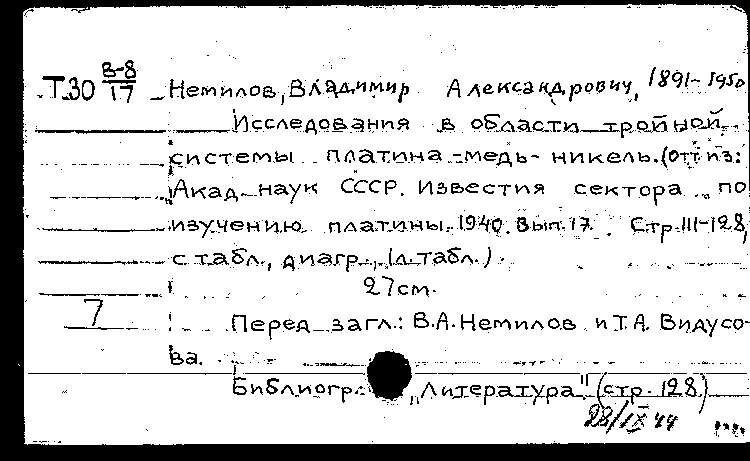 Т.30 В-8/17 Немилов, Владимир Александрович, 1891-1950
Исследования в области тройной
системы платина-медь-никель. (Отт из:
Акад. наук СССР. Известия сектора по
изучению платины. 1940. Вып. 17. Стр. 111-128,
с табл., диагр., (л. табл.)
27 см.
7
Перед загл.: В.А. Немилов и Т.А. Видусо-
ва.
Библиогр.: "Литература" (стр. 128)
28/IX 44